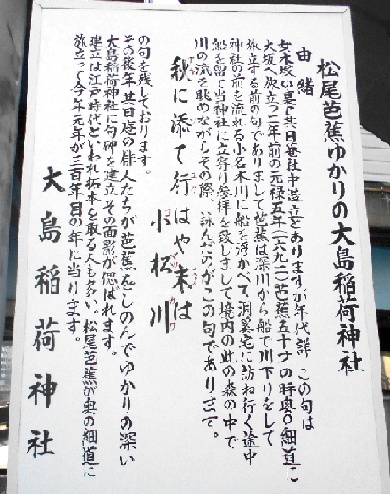 松尾芭蕉ゆかりの大島稲荷神社
由緒
女木塚い基で其日菴社中造立とありますが年代詳 この句は
大坂へ旅立つ二年前の元禄五年(一六九二)芭蕉五十才の時奥の細道に
旅立する前の句でありまして芭蕉は深川から船で川下りをして
神社の前を流れる小名木川に船を浮かべて洞奚宅に訪ね行く途中
船を留め当神社に立寄り参拝を致しまして境内の此の森の中で
川の流を眺めながらその際 詠んだのがこの句であります。
秋に添て行はや末は
小松川
の句を残しております。
その後年其日菴の俳人たちが芭蕉をしのんでゆかりの深い
大島稲荷神社に句碑を建立その面影が偲ばれます。
建立は江戸時代といわれ拓本を取る人も多い。松尾芭蕉が奥の細道に
旅立って今年元年が三百年目の年に当ります。
大島稲荷神社